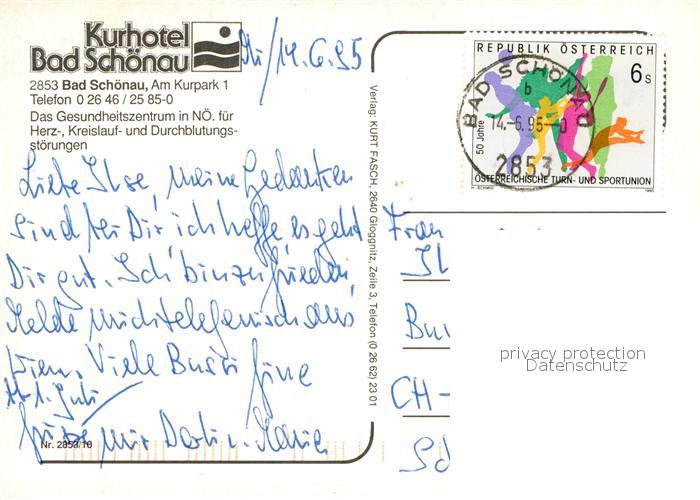 Kurhotel
Bad Schönau
2853 Bad Schönau, Am Kurpark 1
Telefon 0 26 46 / 25 85-0
Das Gesundheitszentrum in NÖ. für
Herz-, Kreislauf- und Durchblutungs-
störungen
Mi/14.6.95
Liebe Ilse, meine Gedanken
sind bei Dir ich hoffe, es geht
Dir gut. Ich bin zufrieden,
Melde mich telefonisch aus
Wien. Viele Bussi
1. Juli
mir
Nr. 2853/10
Verlag: KURT FASCH, 2640 Gloggnitz, Zeile 3, Telefon (0 26 62) 23 01
REPUBLIK ÖSTERREICH
6 S
50 Jahre
ÖSTERREICHISCHE TURN- UND SPORTUNION
H. SCHMID
1995
BAD SCHÖNAU
b
14.-6.95-0
2853
Frau
CH-
privacy protection
Datenschutz